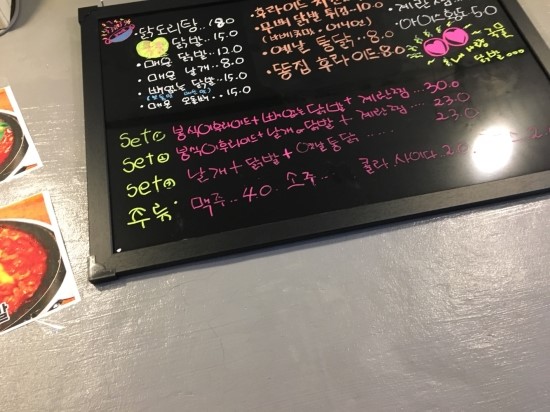 닭도리탕..18.0
닭발..15.0
매운 닭발..12.0
매운 날개..8.0
뼈없는 닭발..15.0
매운 오돌뼈..15.0
후라이드
닭발 튀김..10.0
옛날 통닭..8.0
똥집 후라이드 8.0
계란찜..
5.0
국물
닭발
Set① 봉식이후라이드+뼈없는닭발+계란찜...30.0
Set② 봉식이후라이드+날개or닭발+계란찜....23.0
Set③ 날개+닭발+옛날통닭......23.0
주류 맥주..4.0 소주.. 콜라.사이다 2.0
발